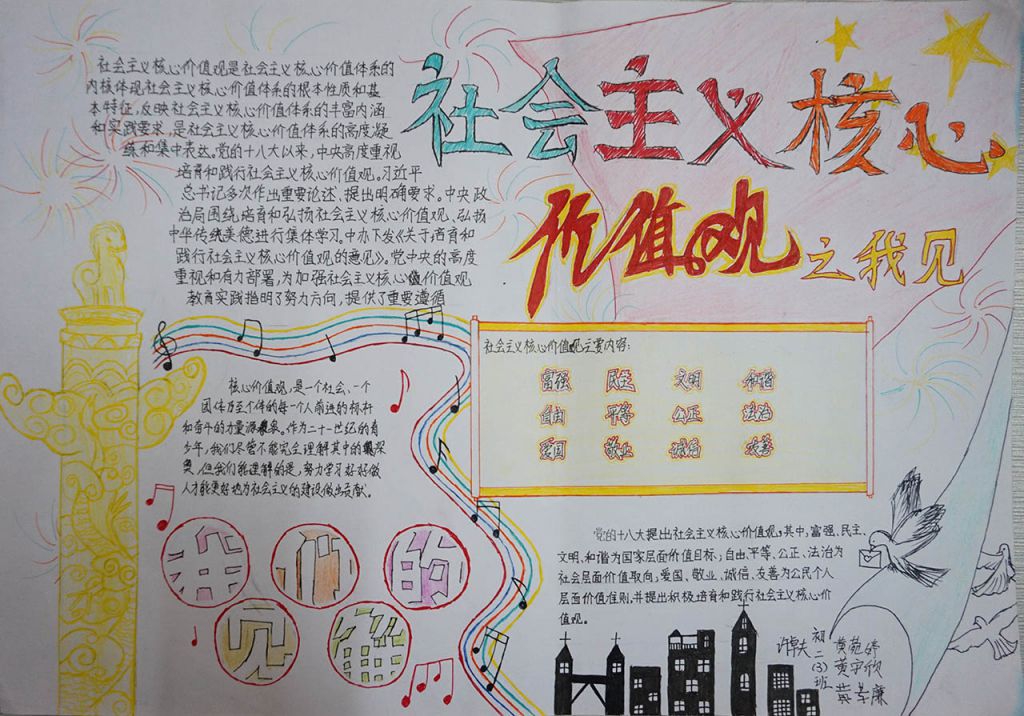 社会主义核心
价值观之我见
社会主义核心价值观是社会主义核心价值体系的
内核体现社会主义核心价值体系的根本性质和基
本特征,反映社会主义核心价值体系的丰富内涵
和实践要求,是社会主义核心价值体系的高度凝
练和集中表达。党的十八大以来,中央高度重视
培育和践行社会主义核心价值观。习近平
总书记多次作出重要论述、提出明确要求。中央政
治局围绕培育和弘扬社会主义核心价值观、弘扬
中华传统美德进行集体学习。中办下发《关于培育和
践行社会主义核心价值观的意见》。党中央的高度
重视和有力部署,为加强社会主义核心价值观
教育实践指明了努力方向,提供了重要遵循
社会主义核心价值观主要内容:
富强 民主 文明 和谐
自由 平等 公正 法治
爱国 敬业 诚信 友善
核心价值观,是一个社会、一个
团体乃至个体的每一个人前进的标杆
和奋斗的力量源泉。作为二十一世纪的青
少年,我们尽管不能完全理解其中的深
奥,但我们能理解的是,努力学习好好做
人才能更好地为社会主义的建设做出贡献。
我们的
见解
党的十八大提出社会主义核心价值观,其中,富强、民主、
文明、和谐为国家层面价值目标;自由、平等、公正、法治为
社会层面价值取向;爱国、敬业、诚信、友善为公民个人
层面价值准则,并提出积极培育和践行社会主义核心价
值观。
初二(3)班